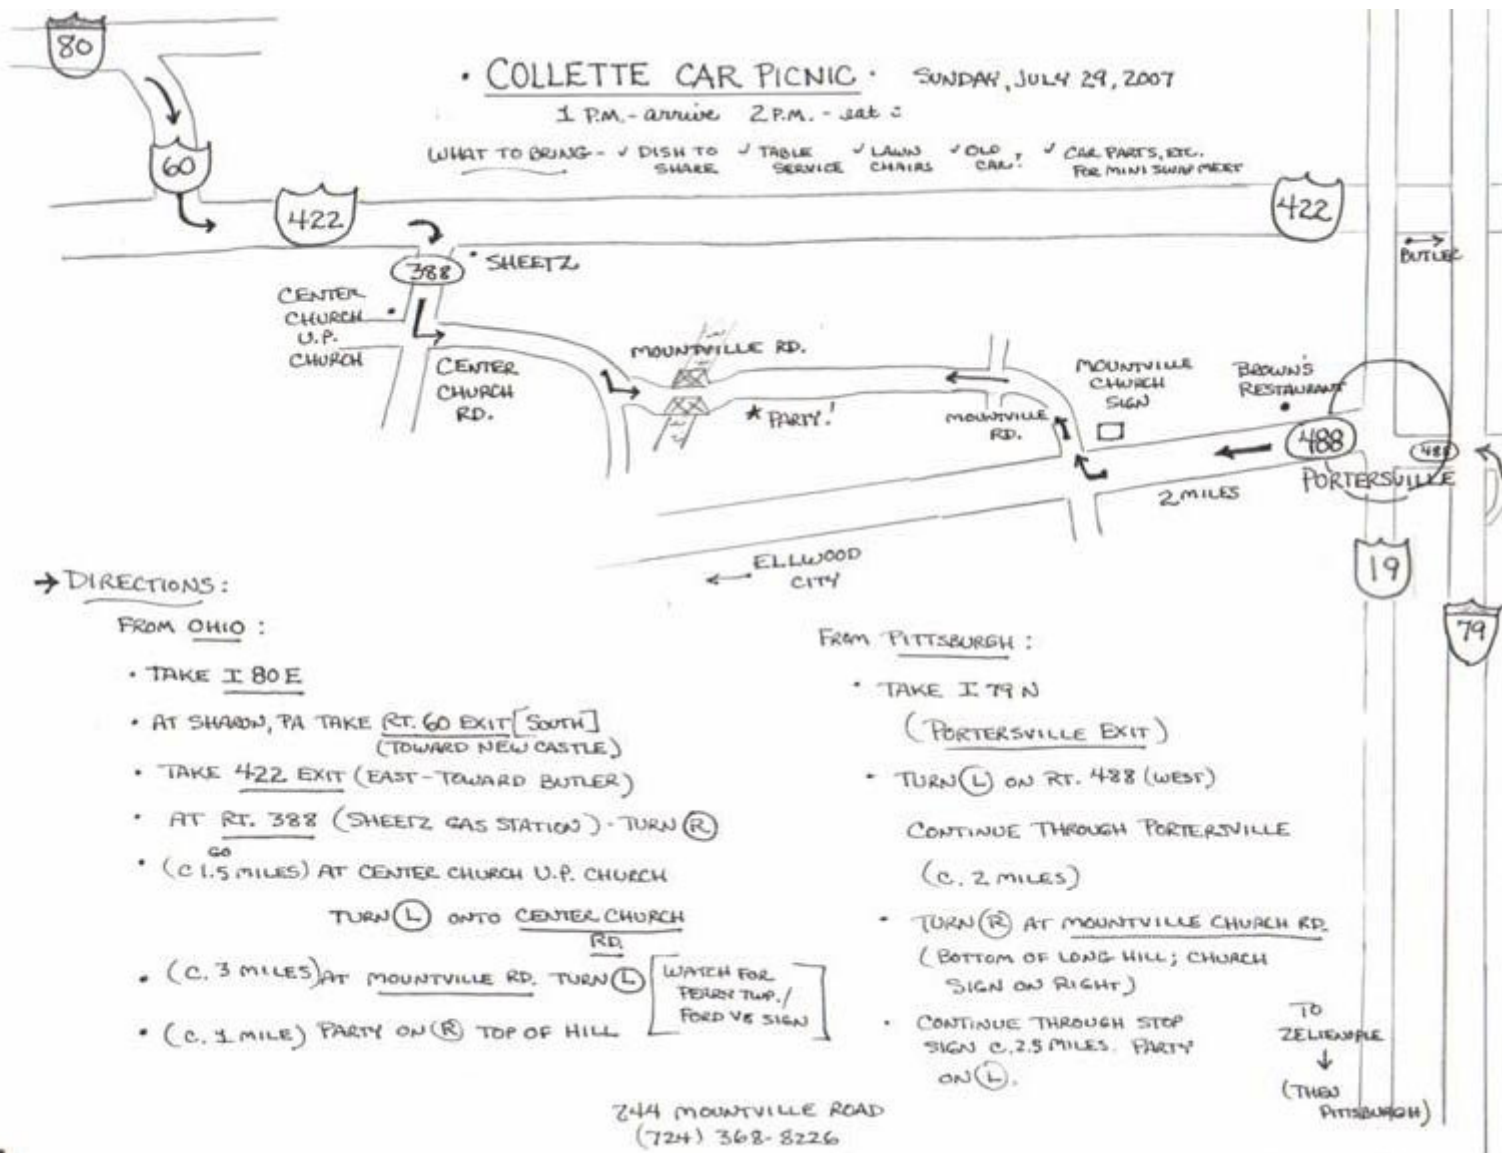 80
• COLLETTE CAR PICNIC • SUNDAY, JULY 29, 2007
1 P.M. - arrive 2 P.M. - eat :
WHAT TO BRING - ✓ DISH TO SHARE ✓ TABLE SERVICE ✓ LAWN CHAIRS ✓ OLD CAR! ✓ CAR PARTS, ETC. FOR MINI SWAP MEET
60
422
422
388
• SHEETZ
BUTLER
CENTER
CHURCH
U.P.
CHURCH
CENTER
CHURCH
RD.
MOUNTVILLE RD.
★ PARTY!
MOUNTVILLE
RD.
MOUNTVILLE
CHURCH
SIGN
BROWN'S
RESTAURANT
488
488
PORTERSVILLE
2 MILES
ELLWOOD
CITY
19
79
→ DIRECTIONS:
FROM OHIO :
• TAKE I 80 E
• AT SHARON, PA TAKE RT. 60 EXIT [SOUTH]
(TOWARD NEW CASTLE)
• TAKE 422 EXIT (EAST - TOWARD BUTLER)
• AT RT. 388 (SHEETZ GAS STATION) - TURN R
GO
• (C 1.5 MILES) AT CENTER CHURCH U.P. CHURCH
TURN L ONTO CENTER CHURCH
RD.
• (C. 3 MILES) AT MOUNTVILLE RD. TURN L [WATCH FOR
PERRY TWP./
FORD V8 SIGN]
• (C. 1 MILE) PARTY ON R TOP OF HILL
FROM PITTSBURGH :
• TAKE I 79 N
(PORTERSVILLE EXIT)
• TURN L ON RT. 488 (WEST)
CONTINUE THROUGH PORTERSVILLE
(C. 2 MILES)
• TURN R AT MOUNTVILLE CHURCH RD.
(BOTTOM OF LONG HILL; CHURCH
SIGN ON RIGHT)
• CONTINUE THROUGH STOP
SIGN C. 2.5 MILES. PARTY
ON L.
TO
ZELIENOPLE
↓
(THEN
PITTSBURGH)
244 MOUNTVILLE ROAD
(724) 368-8226